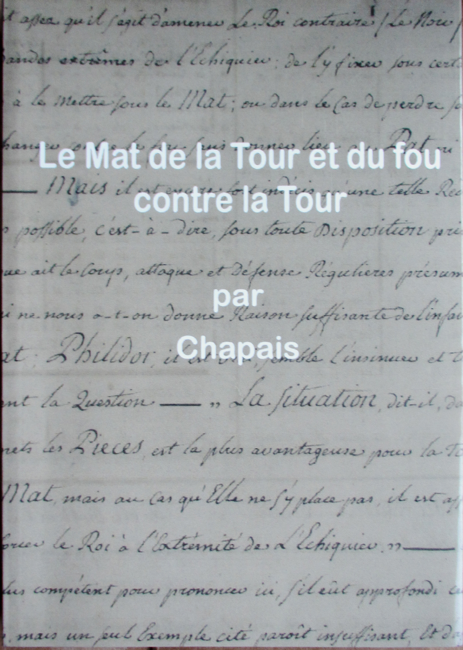 t assez qu'il s'agit d'amener Le Roi contraire (Le Noir
bandes extrêmes de l'Echiquier; de l'y fixer sous cert
à le mettre sous le Mat; ou dans le Cas de perdre
Le Mat de la Tour et du fou
Mais il
contre la Tour
s possible, c'est-à-dire, sous toute Disposition
ue ait le Coup, attaque et Défense Régulieres présum
par
i ne-nous a-t-on donné Raison suffisante de l'infa
Chapais
at; Philidor, il semble l'insinuer et
nt la Question — „ La Situation, dit-il, d
mets les Pieces, est la plus avantageuse pour la To
Mat, mais au cas qu'Elle ne s'y place pas, il est
forcer le Roi à l'Extrémité de L'Echiquier. „ —
lus compétent pour prononcer ici, s'il eût approfondi
, mais un seul Exemple cité paroît insuffisant, Et